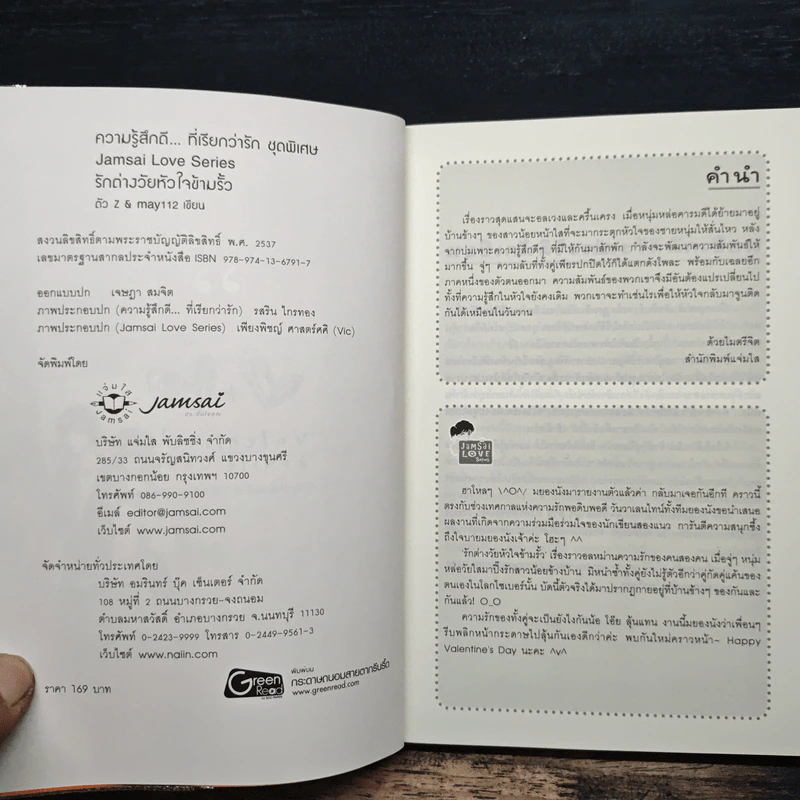 ความรู้สึกดี... ที่เรียกว่ารัก ชุดพิเศษ
Jamsai Love Series
รักต่างวัยหัวใจข้ามรั้ว
ตัว Z & may112 เขียน
สงวนลิขสิทธิ์ตามพระราชบัญญัติลิขสิทธิ์ พ.ศ. 2537
เลขมาตรฐานสากลประจำหนังสือ ISBN 978-974-13-6791-7
ออกแบบปก เจษฎา สมจิต
ภาพประกอบปก (ความรู้สึกดี... ที่เรียกว่ารัก) รสริน ไกรทอง
ภาพประกอบปก (Jamsai Love Series) เพียงพิชญ์ ศาสตร์ศศิ (Vic)
จัดพิมพ์โดย
แจ่มใส
Jamsai
Jamsai
บริษัท แจ่มใส พับลิชชิ่ง จำกัด
285/33 ถนนจรัญสนิทวงศ์ แขวงบางขุนศรี
เขตบางกอกน้อย กรุงเทพฯ 10700
โทรศัพท์ 086-990-9100
อีเมล์ editor@jamsai.com
เว็บไซต์ www.jamsai.com
จัดจำหน่ายทั่วประเทศโดย
บริษัท อมรินทร์ บุ๊ค เซ็นเตอร์ จำกัด
108 หมู่ที่ 2 ถนนบางกรวย-จงถนอม
ตำบลมหาสวัสดิ์ อำเภอบางกรวย จ.นนทบุรี 11130
โทรศัพท์ 0-2423-9999 โทรสาร 0-2449-9561-3
เว็บไซต์ www.naiin.com
ราคา 169 บาท
Green
Read
พิมพ์บน
กระดาษถนอมสายตากรีนรี้ด
www.greenread.com
คำนำ
เรื่องราวสุดแสนจะอลเวงและครื้นเครง เมื่อหนุ่มหล่อคารมดีได้ย้ายมาอยู่
บ้านข้างๆ ของสาวน้อยหน้าใสที่จะมากระตุกหัวใจของชายหนุ่มให้สั่นไหว หลัง
จากบ่มเพาะความรู้สึกดีๆ ที่มีให้กันมาสักพัก กำลังจะพัฒนาความสัมพันธ์ให้
มากขึ้น จู่ๆ ความลับที่ทั้งคู่เพียรปกปิดไว้ก็ได้แตกดังโพละ พร้อมกับเฉลยอีก
ภาคหนึ่งของตัวตนออกมา ความสัมพันธ์ของพวกเขาจึงมีอันต้องแปรเปลี่ยนไป
ทั้งที่ความรู้สึกในหัวใจยังคงเดิม พวกเขาจะทำเช่นไรเพื่อให้หัวใจกลับมาจูนติด
กันได้เหมือนในวันวาน
ด้วยไมตรีจิต
สำนักพิมพ์แจ่มใส
JAMSAI
LOVE
Series
ฮาโหลๆ \^O^/ มยองนังมารายงานตัวแล้วค่า กลับมาเจอกันอีกที คราวนี้
ตรงกับช่วงเทศกาลแห่งความรักพอดิบพอดี วันวาเลนไทน์ทั้งทีมยองนังขอนำเสนอ
ผลงานที่เกิดจากความร่วมมือร่วมใจของนักเขียนสองแนว การันตีความสนุกซึ้ง
ถึงใจบายมยองนังเจ้าค่ะ โฮะๆ ^^
'รักต่างวัยหัวใจข้ามรั้ว' เรื่องราวอลหม่านความรักของคนสองคน เมื่อจู่ๆ หนุ่ม
หล่อวัยไสมาปิ๊งรักสาวน้อยข้างบ้าน มิหนำซ้ำทั้งคู่ยังไม่รู้ตัวอีกว่าคู่กัดคู่แค้นของ
ตนเองในโลกไซเบอร์นั้น บัดนี้ตัวจริงได้มาปรากฏกายอยู่ที่บ้านข้างๆ ของกันและ
กันแล้ว! O_O
ความรักของทั้งคู่จะเป็นยังไงกันน้อ โอ๊ย ลุ้นแทน งานนี้มยองนังว่าเพื่อนๆ
รีบพลิกหน้ากระดาษไปลุ้นกันเองดีกว่าค่ะ พบกันใหม่คราวหน้า~ Happy
Valentine's Day นะคะ ^v^